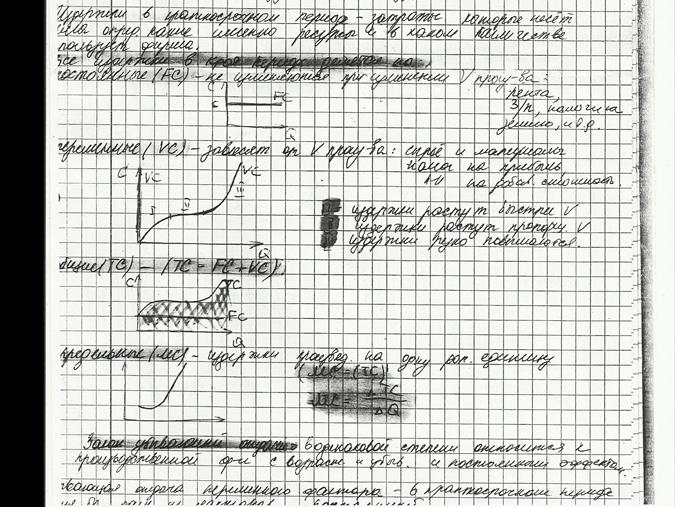 Издержки в краткосрочном периоде - затраты которые несёт
какие именно ресурсы и в каком количестве
фирма.
все издержки в крат периоде делятся на:
постоянные (FC) - не изменяются при изменении V произ-ва:
рента,
з/п, налог на
землю, и т.д.
C
FC
C
Q
переменные (VC) - зависят от V произ-ва: сырьё и материалы
налог на прибыль
на добав. стоимость.
C
VC
VC
I
II
III
Q
издержки растут быстрее V
издержки растут пропорц V
издержки резко повышаются.
общие (TC) - (TC = FC + VC)
C
TC
FC
Q
предельные (MC) - издержки произвед. на одну доп. единицу
MC = (TC)'
MC = Δ TC
Δ Q
Закон убывающей отдачи в одинаковой степени относится к
производственной ф-и с возраст. и убыв. и постоянным эффектом.
отдача переменного фактора - в краткосрочном периоде